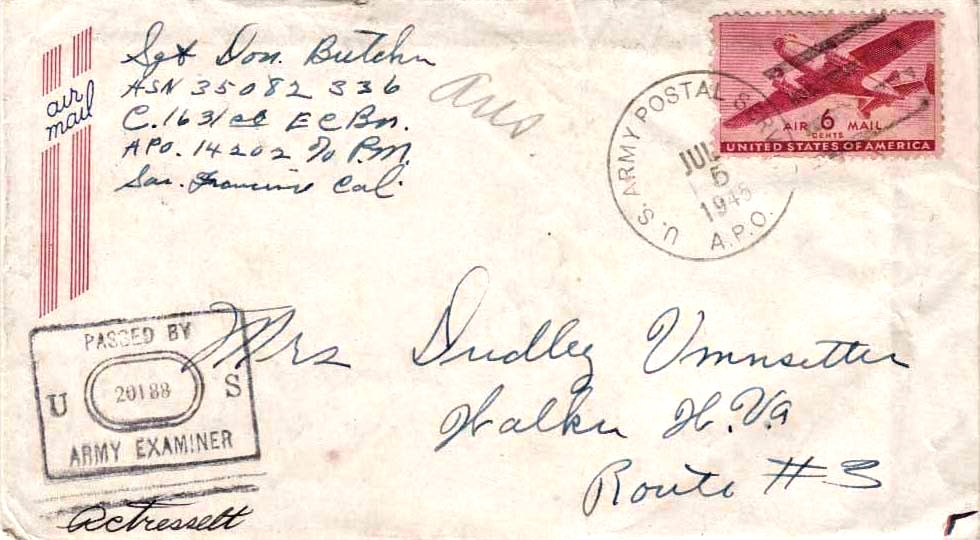 Sgt Don. Butcher
ASN 35082 336
C. 1631 EC Bn.
APO. 14202 % P.M.
San. Francisco Cal.
air
mail
Ans.
U.S. ARMY POSTAL
JUL
5
1945
A.P.O.
AIR 6 MAIL
CENTS
UNITED STATES OF AMERICA
PASSED BY
U 20188 S
ARMY EXAMINER
Mrs Dudley
Walker W.Va
Route #3